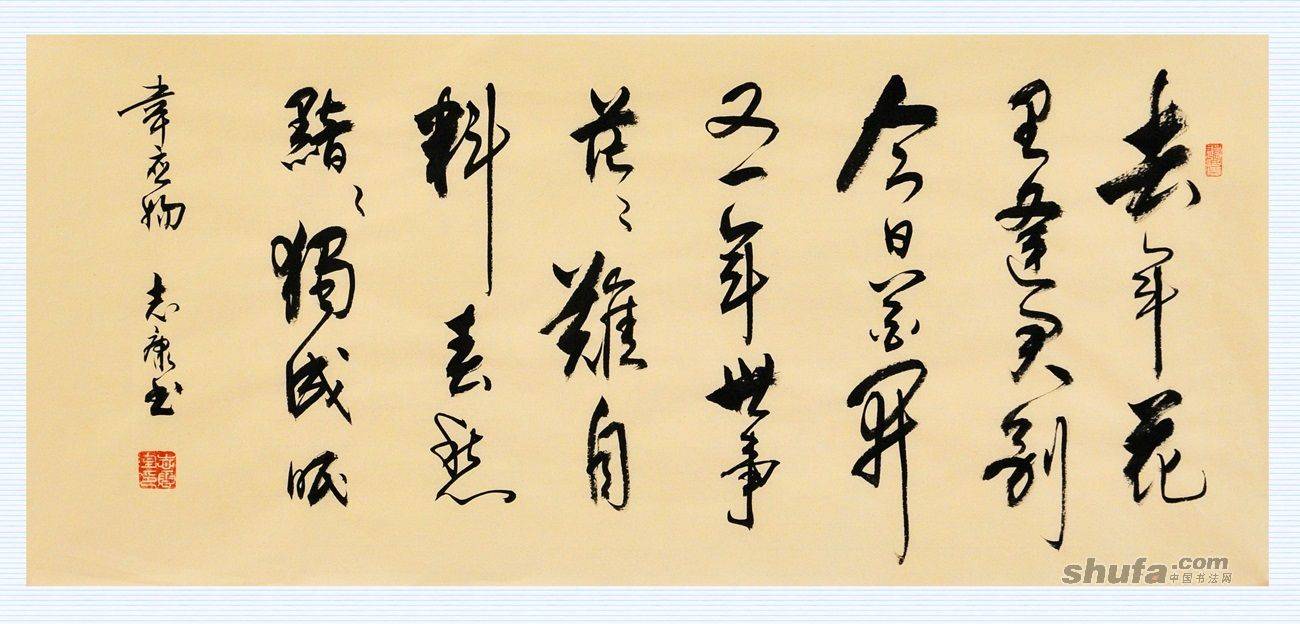 去年花
里逢君别
今日花開
又一年世事
茫〻難自
料春愁
黯〻獨成眠
韋应物 志康书
shufa.com
中国书法网